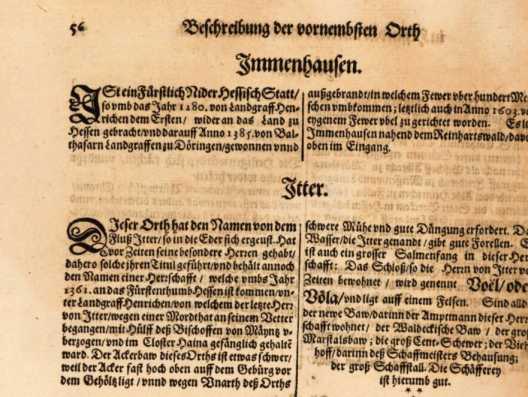 56
Beschreibung der vornembsten Orth
Immenhausen.
ISt ein Fürstlich Nider Hessisch Statt/
so vmb das Jahr 1280. von Landgraff Hen-
richen dem Ersten/ wider an das Land zu
Hessen gebracht/vnd darauff Anno 1385. von Bal-
thasarn Landgraffen zu Döringen/gewonnen vnnd
außgebrandt/in welchem Fewer vber hundert
schen vmbkommen; letztlich auch in Anno 1603.
eygenem Fewer vbel zu gerichtet worden.
Immenhausen nahend dem Reinhartswald/
oben im Eingang.
Itter.
DIeser Orth hat den Namen von dem
Fluß Itter/so in die Eder sich ergeust. Hat
vor Zeiten seine besondere Herren gehabt/
dahero solche jhren Titul geführt/vnd behält annoch
den Namen einer Herrschafft/ welche vmbs Jahr
1361. an das Fürstenthumb Hessen ist kommen/vn-
ter Landgraff Henrichen/von welchem der letzte Herr
von Itter/wegen einer Mordthat an seinem Vetter
begangen/mit Hülff deß Bischoffen von Mäyntz v-
berzogen/vnd im Closter Haina gefänglich gehalten
ward. Der Ackerbaw dieses Orths ist etwas schwer/
weil der Acker fast hoch oben auff dem Gebürg vor
dem Gehöltz ligt/ vnnd wegen Vnarth deß Orths
schwere Mühe vnd gute Düngung erfordert.
Wasser/die Itter genandt/ gibt gute Forellen.
ist auch ein grosser Salmenfang in dieser
schafft: Das Schloß/so die Herrn von Itter
Zeiten bewohnet/ wird genennt Voël/
Völa/vnd ligt auff einem Felsen. Sind
der newe Baw/darinn der Amptmann dieser
schafft wohnet/ der Waldeckische Baw/ der
Marstalsbaw; die groß Cent-Schewer; der
hoff/darinn deß Schaffmeisters Behausung;
der groß Schaffstall. Die Schäfferey
ist hierumb gut.
* *